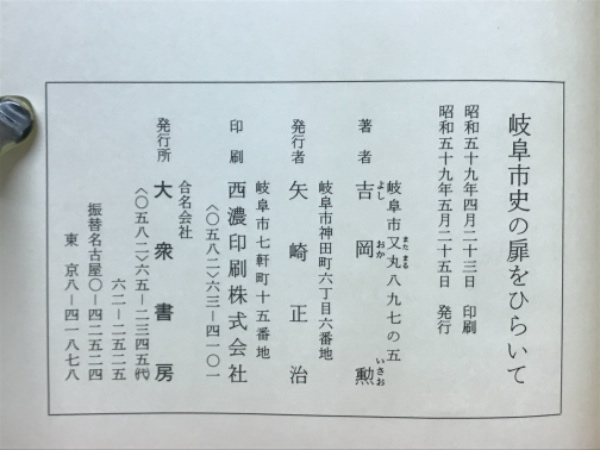 岐阜市史の扉をひらいて
昭和五十九年四月二十三日 印刷
昭和五十九年五月二十五日 発行
岐阜市又丸八九七の五
またまる
著者 吉岡 勲
よし おか いさお
岐阜市神田町六丁目六番地
発行者 矢崎正治
岐阜市七軒町十五番地
印刷 西濃印刷株式会社
(〇五八二)六三-四一〇一
合名会社
発行所 大衆書房
(〇五八二)六五-二三四五(代)
六二-二五二五
振替名古屋〇-四二五二四
東京八-四一八七八